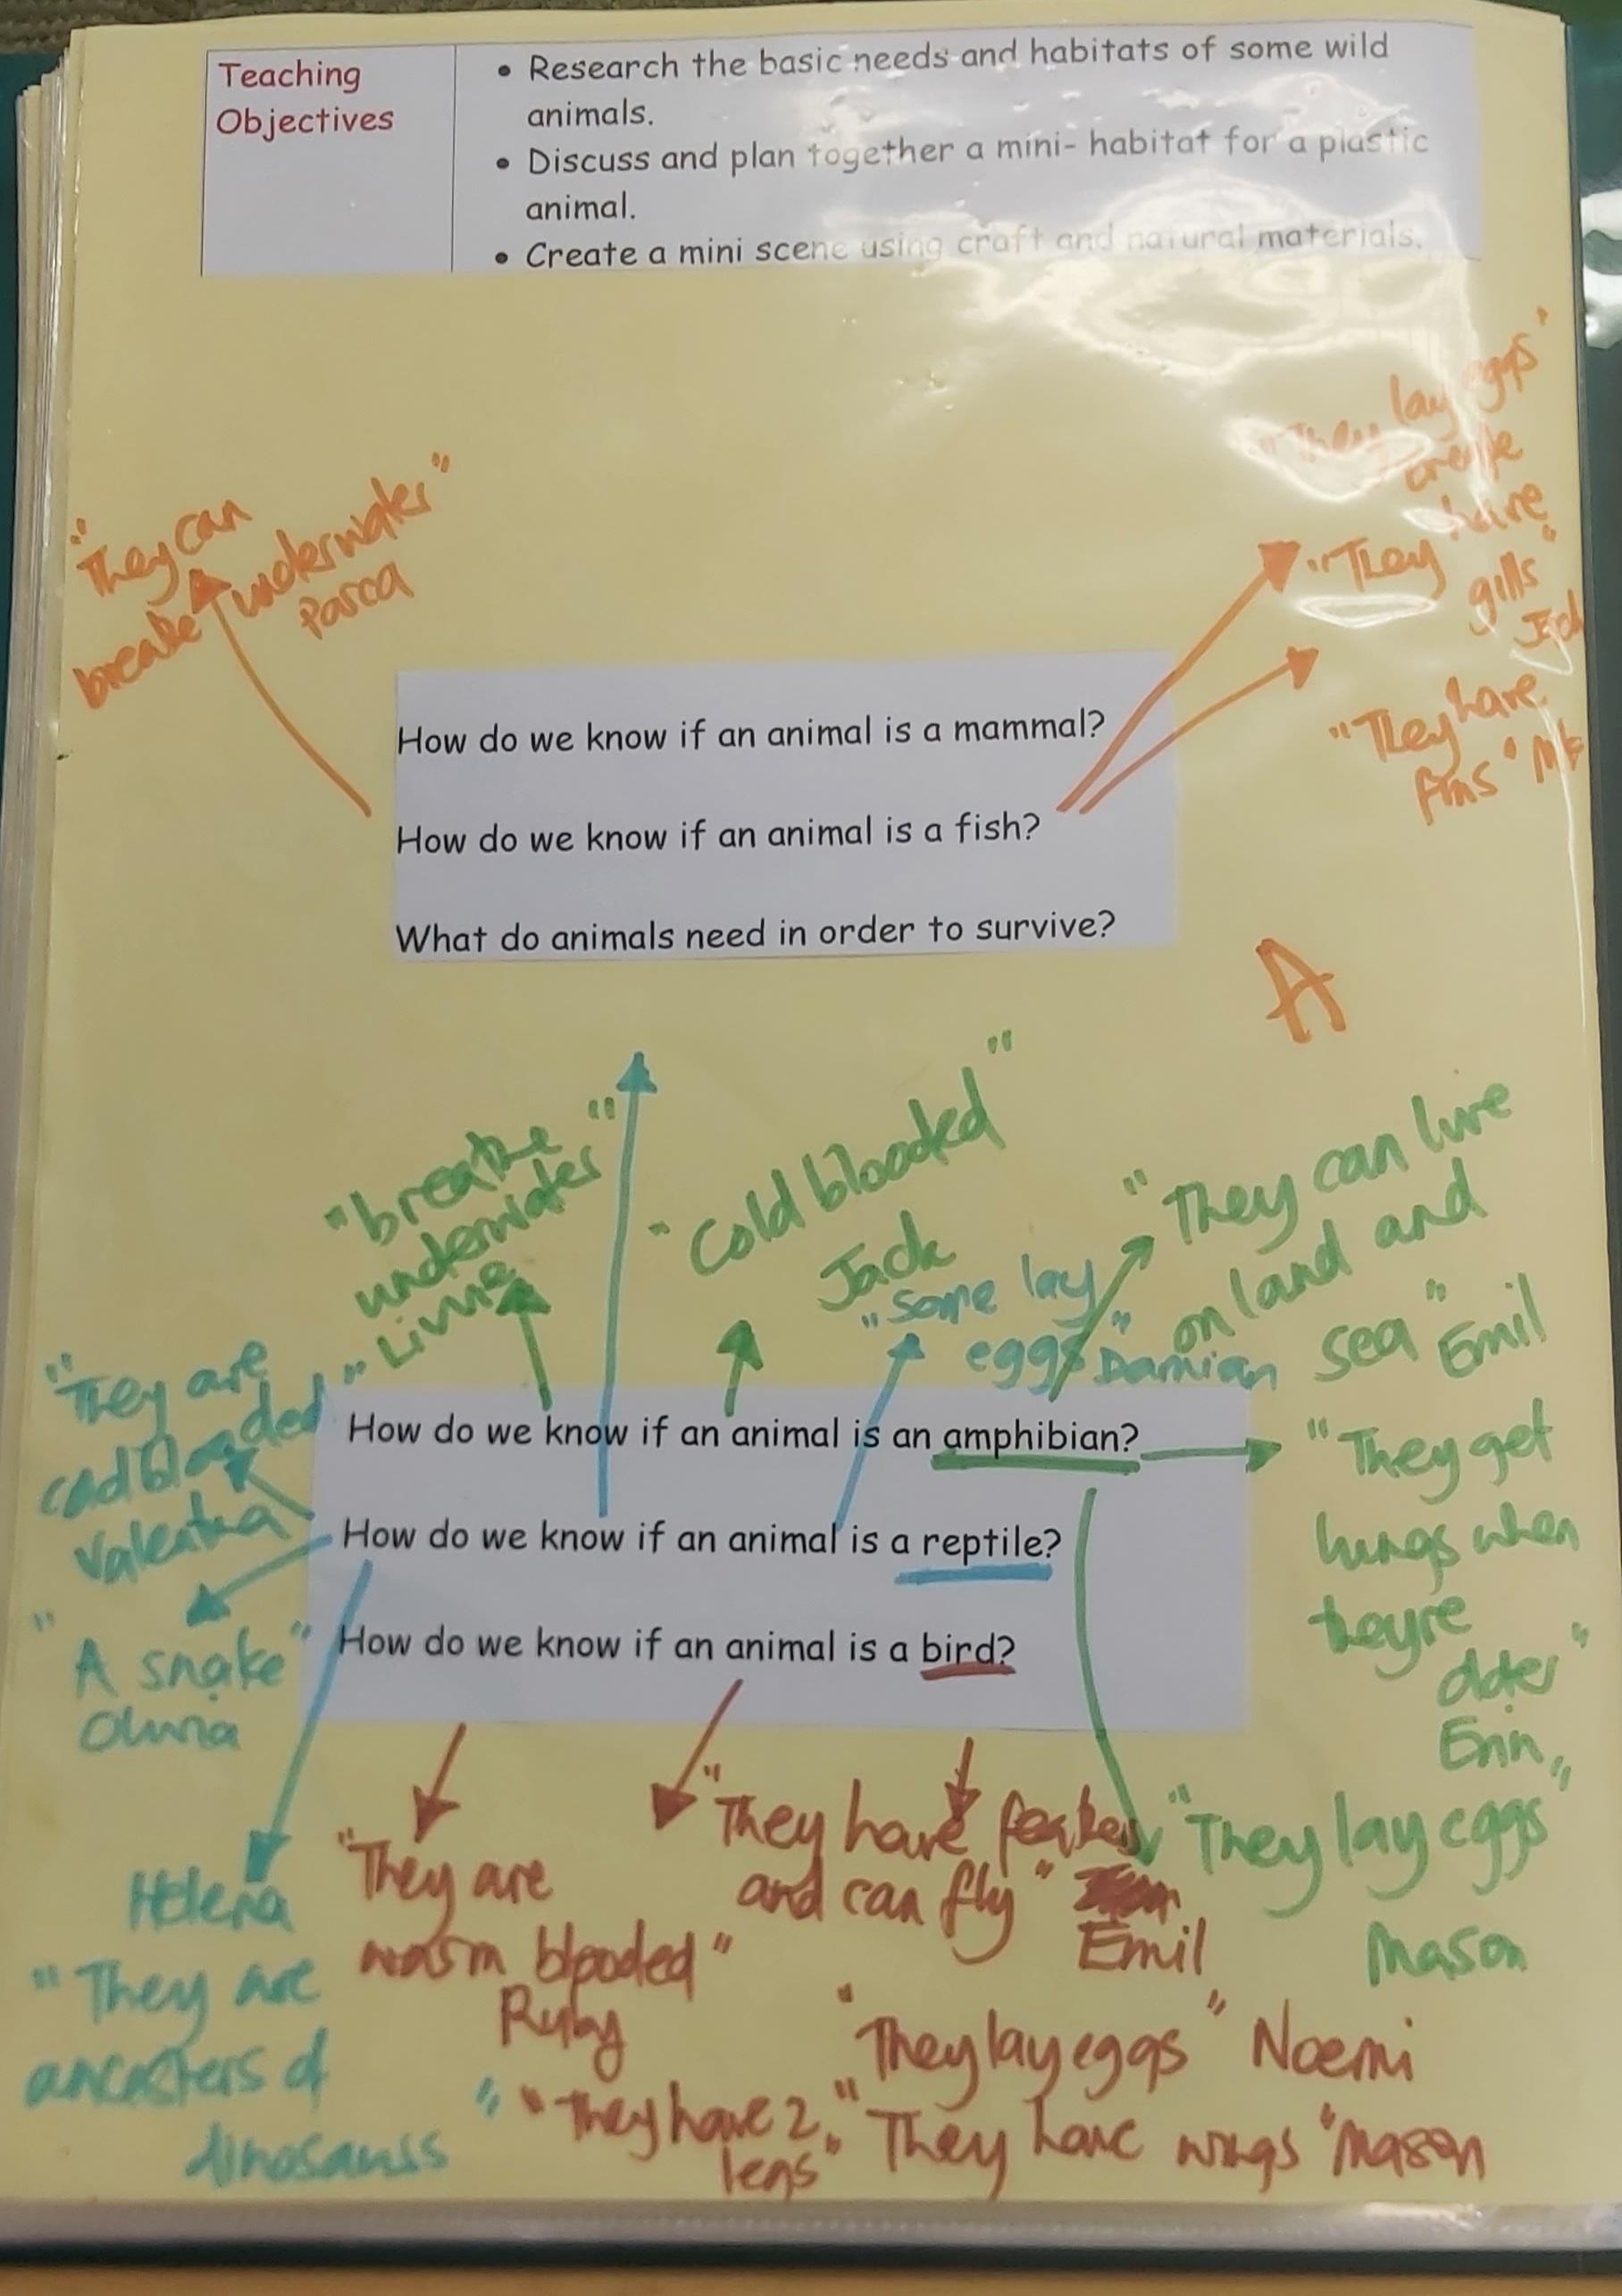 Teaching
Objectives
• Research the basic needs and habitats of some wild
animals.
• Discuss and plan together a mini- habitat for a plastic
animal.
• Create a mini scene using craft and natural materials.
"They lay eggs"
"They can
breathe underwater"
"They have
gills"
"They have
fins"
How do we know if an animal is a mammal?
How do we know if an animal is a fish?
What do animals need in order to survive?
A
"breathe
underwater"
"Cold blooded"
Jack
"They can live
on land and
sea" Emil
"Some lay
eggs" Damian
"They are
Valentina
How do we know if an animal is an amphibian?
How do we know if an animal is a reptile?
How do we know if an animal is a bird?
"They get
lungs when
theyre
older"
Erin
"A snake"
Olivia
"They lay eggs"
Mason
Helena
"They are
ancesters of
dinosaurs"
"They are
warm blooded"
Ruby
"They have
and can fly"
Emil
"They lay eggs" Noemi
"They have 2
legs"
"They have wings" Mason